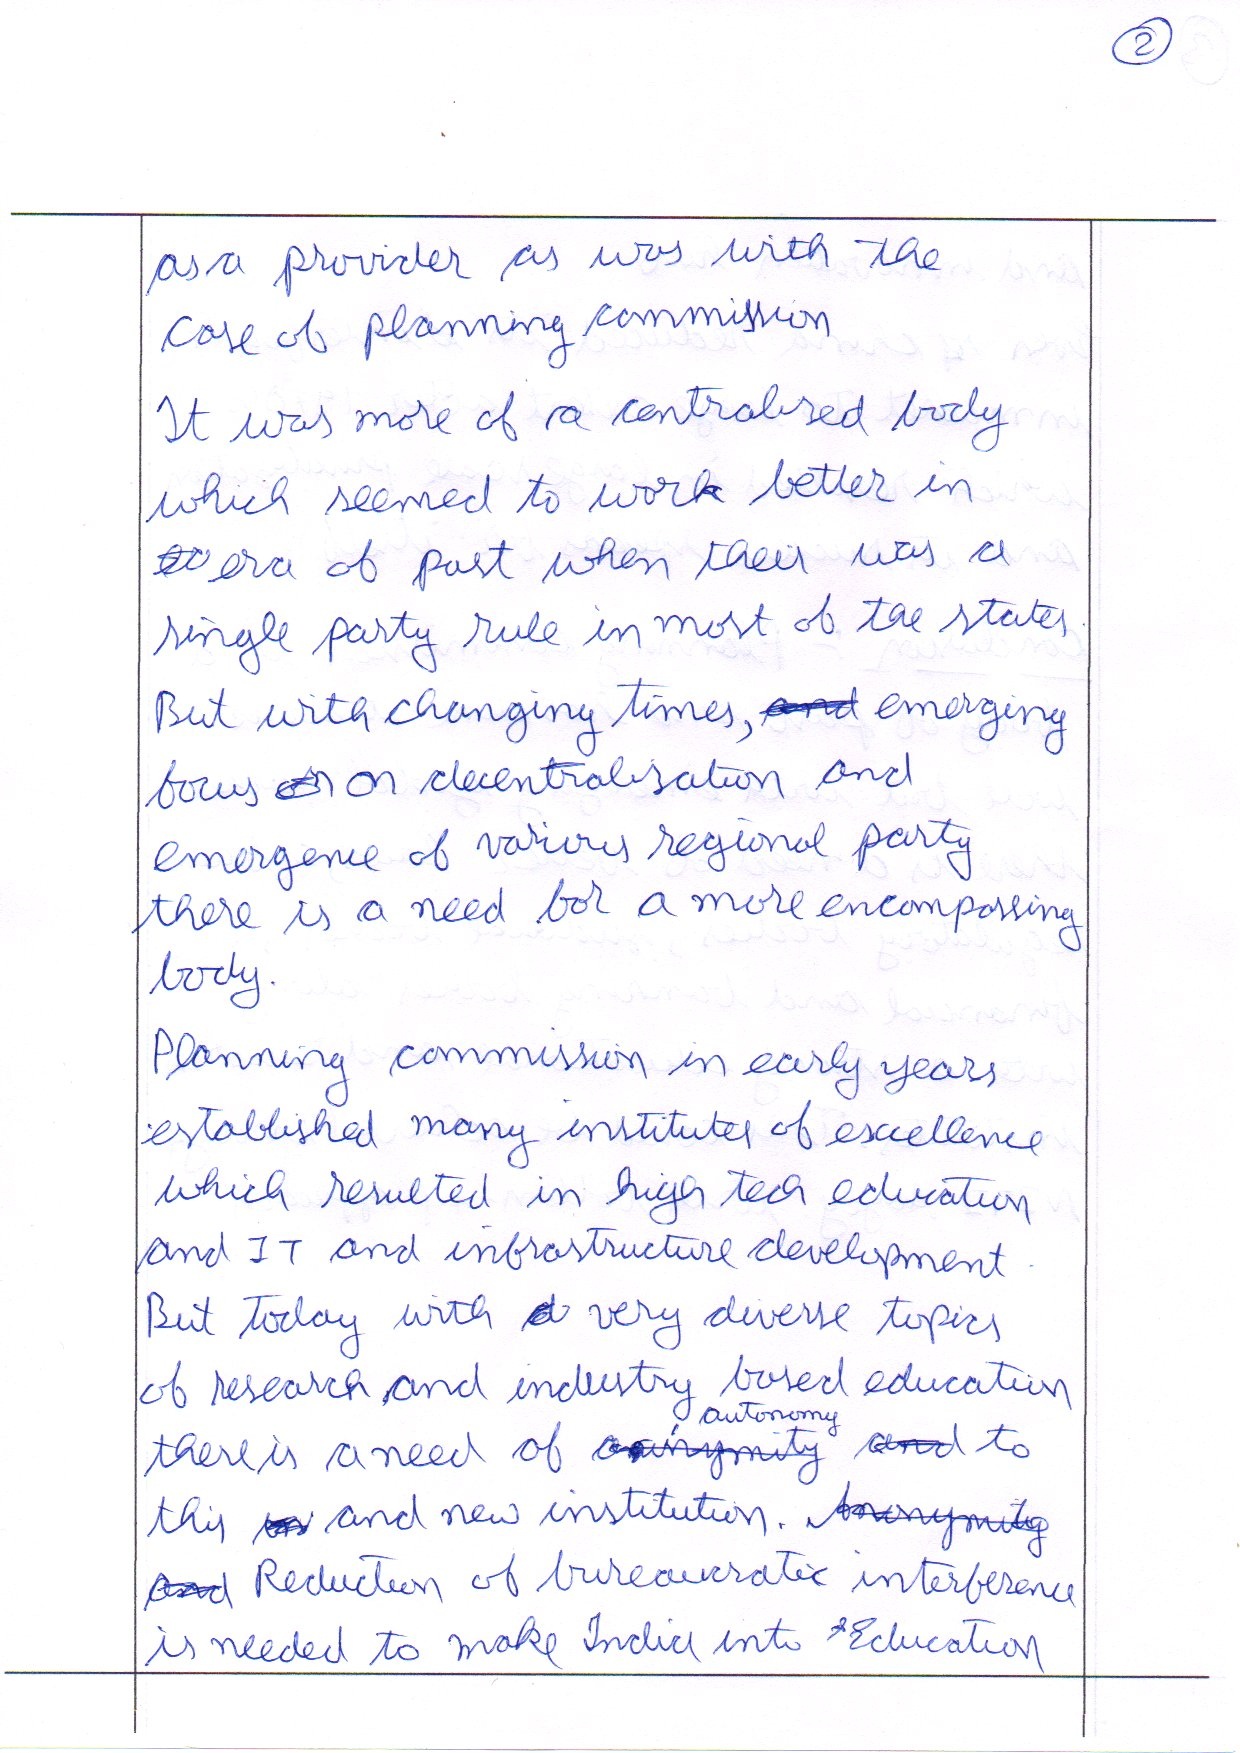 2
as a provider as was with the
case of planning commission
It was more of a centralised body
which seemed to work better in
era of past when their was a
single party rule in most of the states.
But with changing times, and emerging
focus on decentralisation and
emergence of various regional party
there is a need for a more encompassing
body.
Planning commission in early years
established many institutes of excellence
which resulted in high tech education
and IT and infrastructure development.
But today with very diverse topics
of research and industry based education
autonomy
there is a need of and to
this and new institution.
and Reduction of bureaucratic interference
is needed to make India into Education